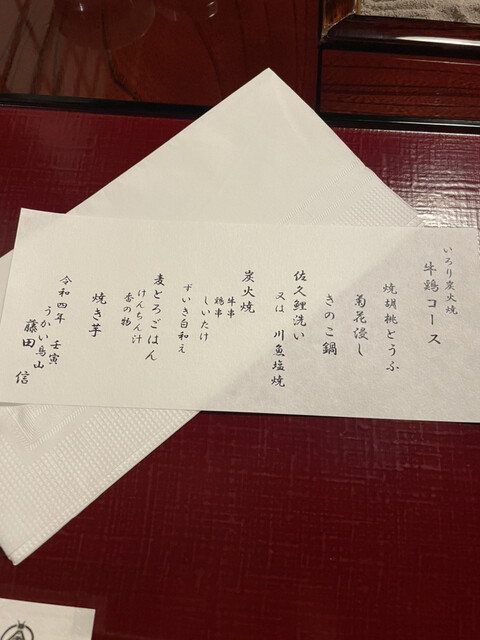 いろり炭火焼
牛鶏コース
焼胡桃どうふ
菊花浸し
きのこ鍋
佐久鯉洗い
又は 川魚塩焼
炭火焼
牛串
鶏串
しいたけ
ずいき白和え
麦とろごはん
けんちん汁
香の物
焼き芋
令和四年 壬寅
うかい鳥山
藤田 信